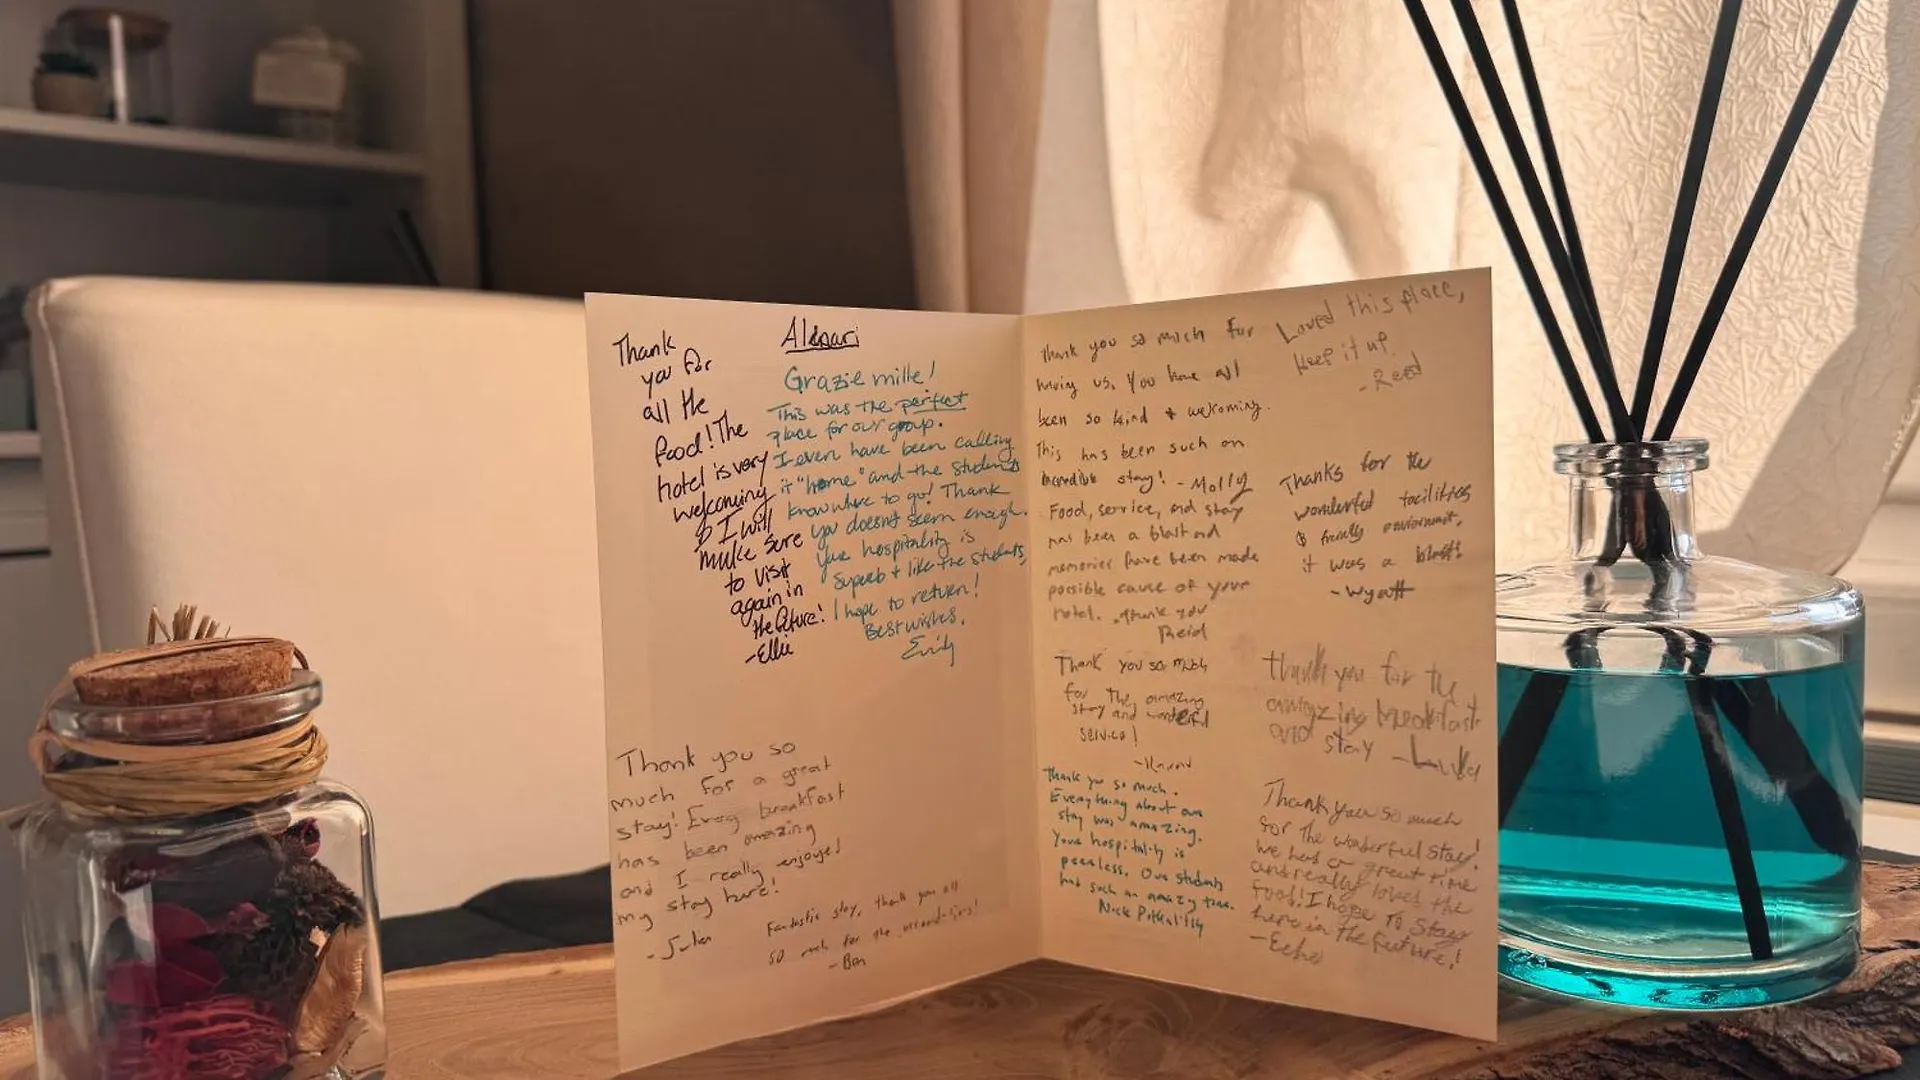 Thank
you for
all the
food! The
hotel is very
welcoming
& I will
make sure
to visit
again in
the future!
-Ellie
Grazie mille!
This was the perfect
place for our group.
I even have been calling
it "home" and the students
know where to go! Thank
you doesn't seem enough.
Your hospitality is
superb + like the students,
I hope to return!
Best wishes,
Emily
Thank you so
much for a great
stay! Every breakfast
has been amazing
and I really enjoyed
my stay here!
Fantastic stay, thank you all
so much for the
-Ben
Thank you so much for
having us. You have all
been so kind + welcoming.
This has been such an
incredible stay! -Molly
Food, service, and stay
has been a blast and
memories have been made
possible cause of your
hotel. Thank you
Reid
Thank you so much
for the amazing
stay and wonderful
service!
Thank you so much.
Everything about our
stay was amazing.
Your hospitality is
peerless. Our students
had such an amazing time.
Nick
Loved this place,
Keep it up
-Reed
Thanks for the
wonderful facilities
& friendly enviorment,
it was a blast!
-Wyatt
Thank you for the
amazing breakfast
and stay
Thank you so much
for the wonderful stay!
We had a great time
and really loved the
food! I hope to stay
here in the future!